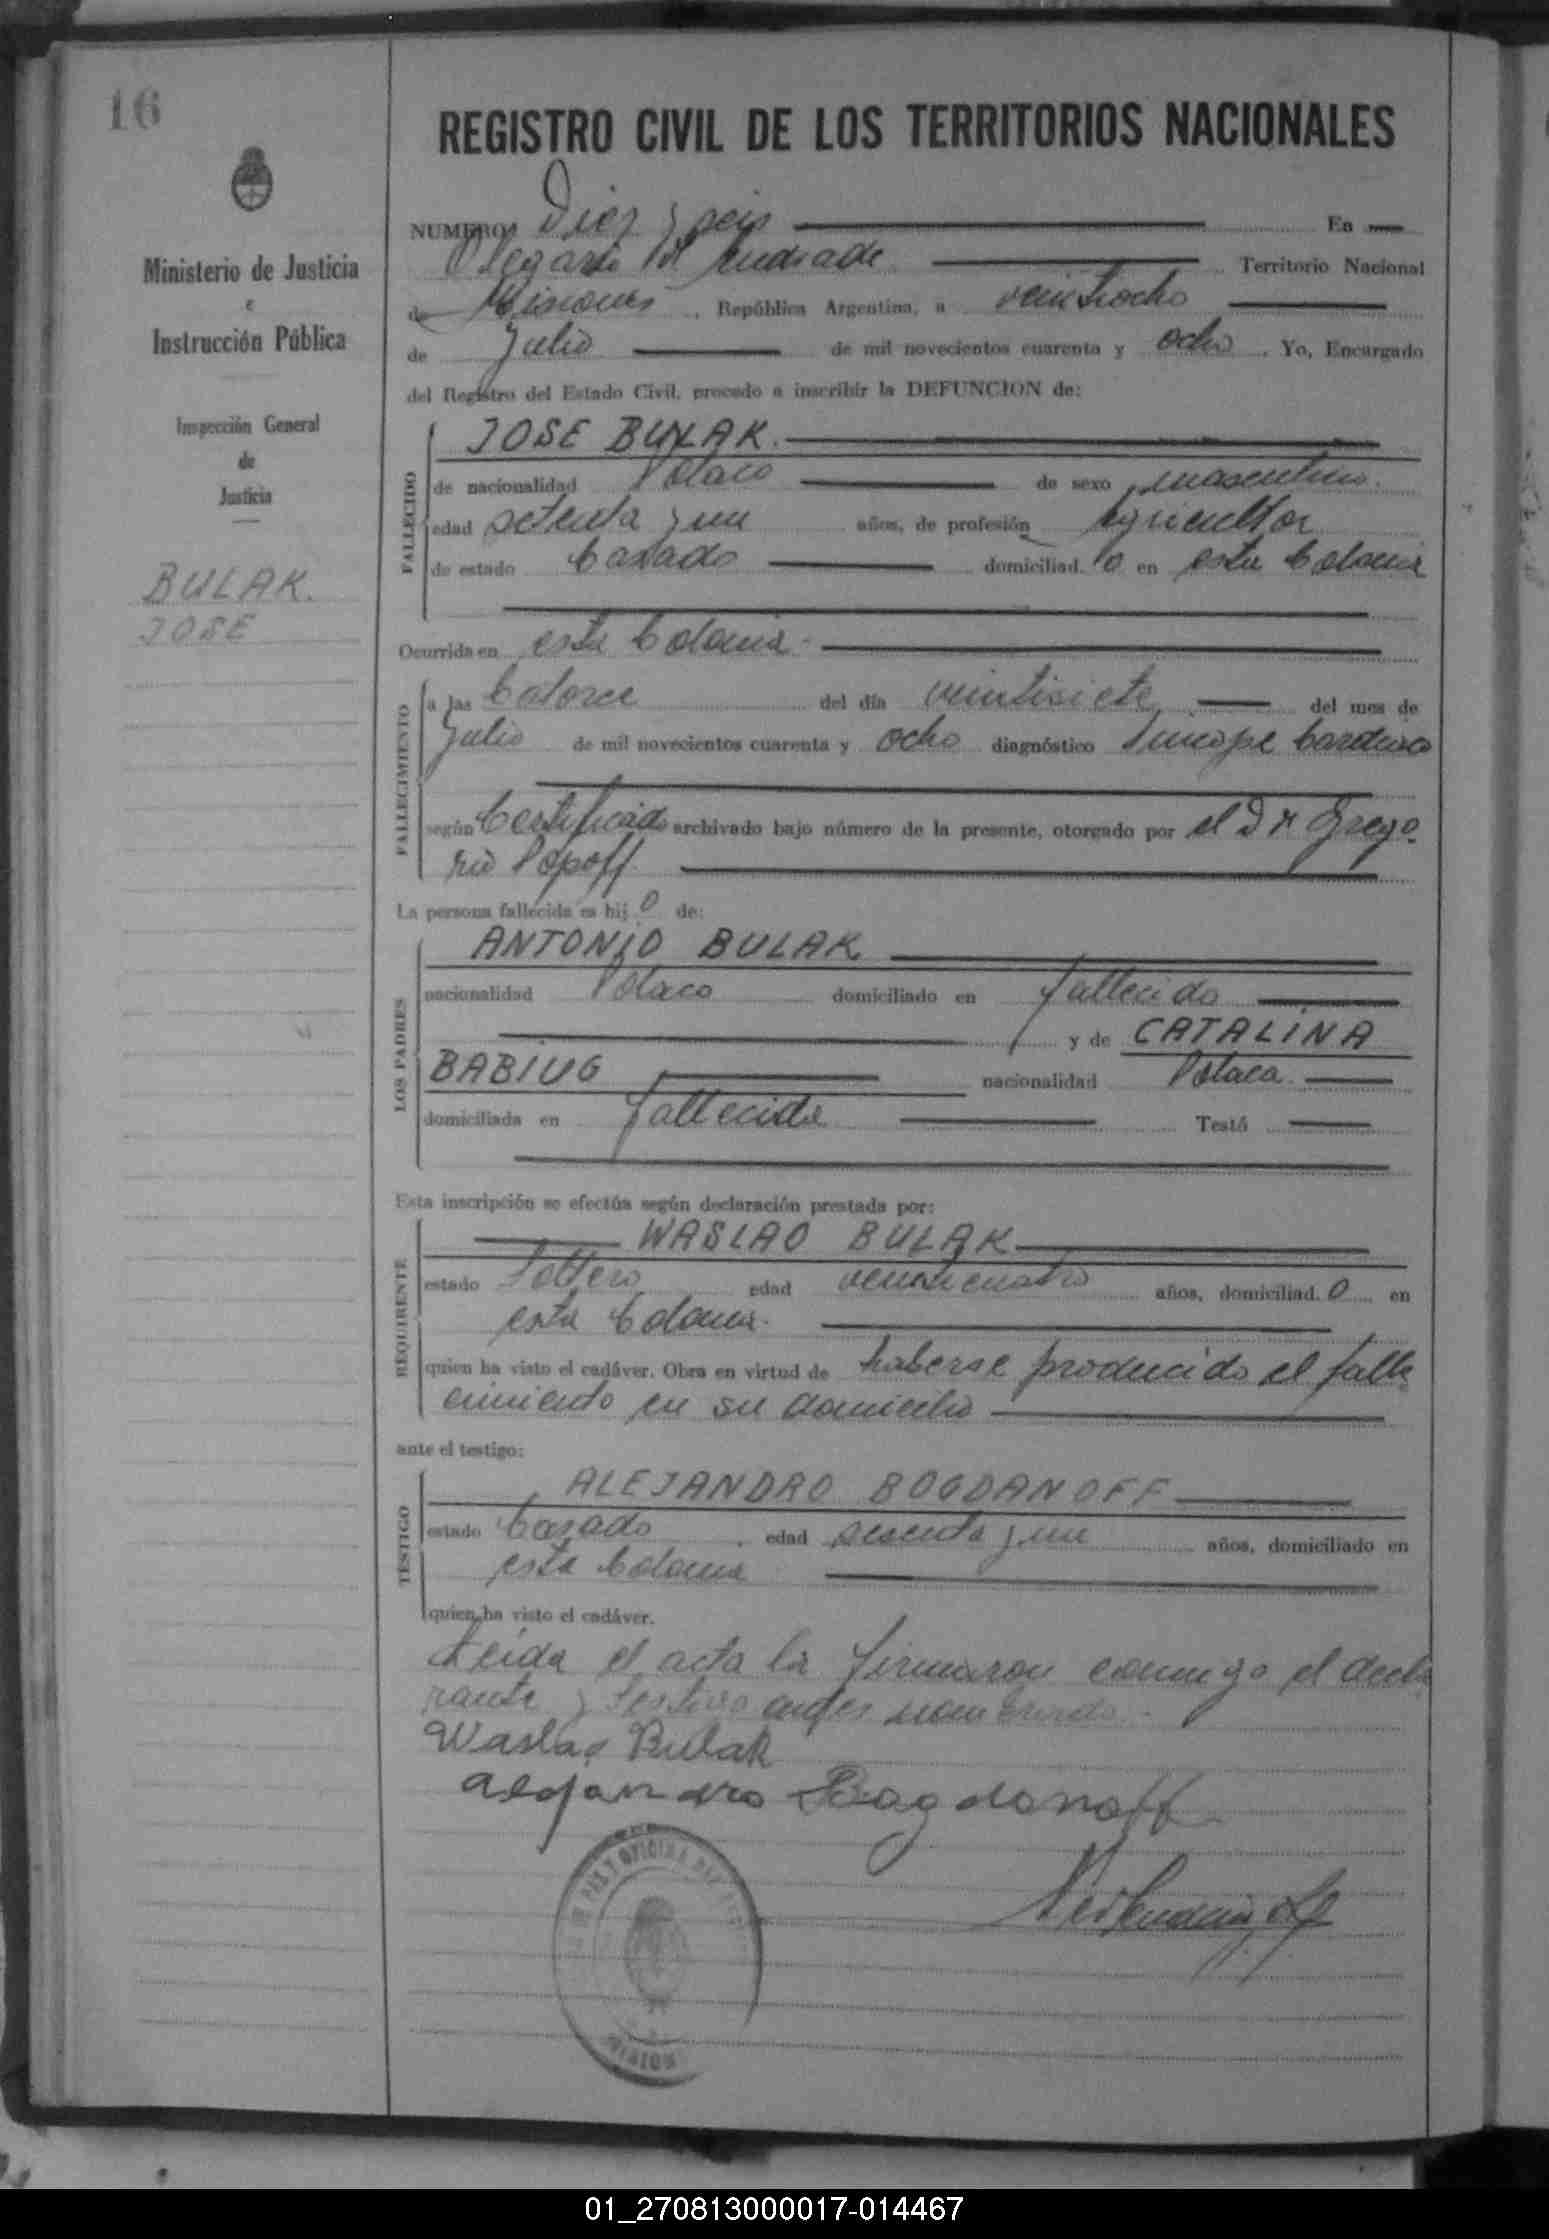 16
Ministerio de Justicia
e
Instrucción Pública
Inspección General
de
Justicia
BULAK.
JOSE
REGISTRO CIVIL DE LOS TERRITORIOS NACIONALES
NUMERO Diez y seis En
Olegario V. Andrade Territorio Nacional
de Misiones, República Argentina, a veintiocho
de Julio de mil novecientos cuarenta y ocho. Yo, Encargado
del Registro del Estado Civil, procedo a inscribir la DEFUNCION de:
FALLECIDO
JOSE BULAK.
de nacionalidad Polaco de sexo masculino.
edad setenta y un años, de profesión Agricultor
de estado Casado domiciliad o en esta Colonia
Ocurrida en esta Colonia.
FALLECIMIENTO
a las Catorce del día veintisiete del mes de
Julio de mil novecientos cuarenta y ocho diagnóstico Sincope Cardiaco
según Certificado archivado bajo número de la presente, otorgado por el Dr Grego-
rio Popoff.
La persona fallecida es hij o de:
LOS PADRES
ANTONIO BULAK
nacionalidad Polaco domiciliado en fallecido
y de CATALINA
BABIUG nacionalidad Polaca.
domiciliada en fallecida Testó
Esta inscripción se efectúa según declaración prestada por:
REQUIRENTE
WASLAO BULAK
estado Soltero edad veinticuatro años, domiciliad o en
esta Colonia.
quien ha visto el cadáver. Obra en virtud de haberse producido el falle
cimiento en su domicilio
ante el testigo:
TESTIGO
ALEJANDRO BOGDANOFF
estado Casado edad sesenta y un años, domiciliado en
esta Colonia
quien ha visto el cadáver.
Leida el acta la firmaron conmigo el decla
rante y testigo antes nombrado.
Waslao Bulak
Alejandro Bogdanoff
DE PAZ Y OFICINA DEL
MISIONES
01_270813000017-014467